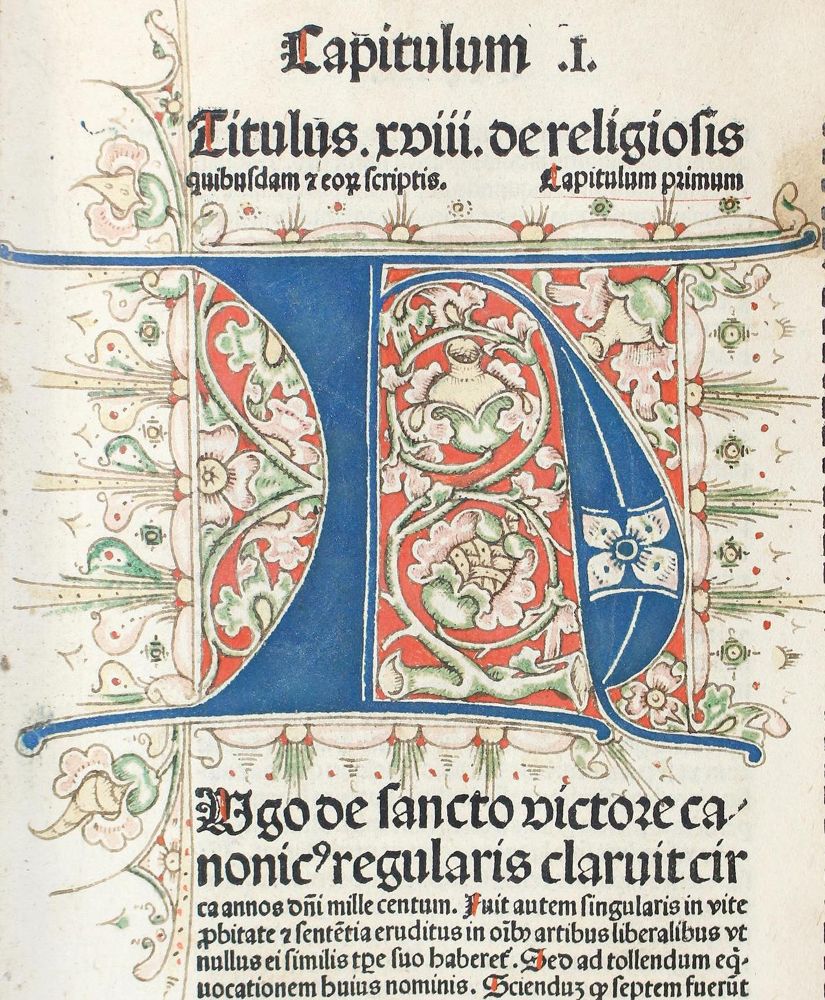 Capitulum .I.
Titulus. xviii. de religioſis
quibuſdam ⁊ eoꝝ ſcriptis. Capitulum primum
H
Ugo de ſancto victore ca-
nonicꝰ regularis claruit cir
ca annos dñi mille centum. Fuit autem ſingularis in vite
ꝓbitate ⁊ ſentẽtia eruditus in oĩbꝰ artibus liberalibus vt
nullus ei ſimilis tꝑe ſuo haberet᷑. Sed ad tollendum eq̃-
uocationem huius nominis. Scienduꝫ ꝙ ſeptem fuerũt